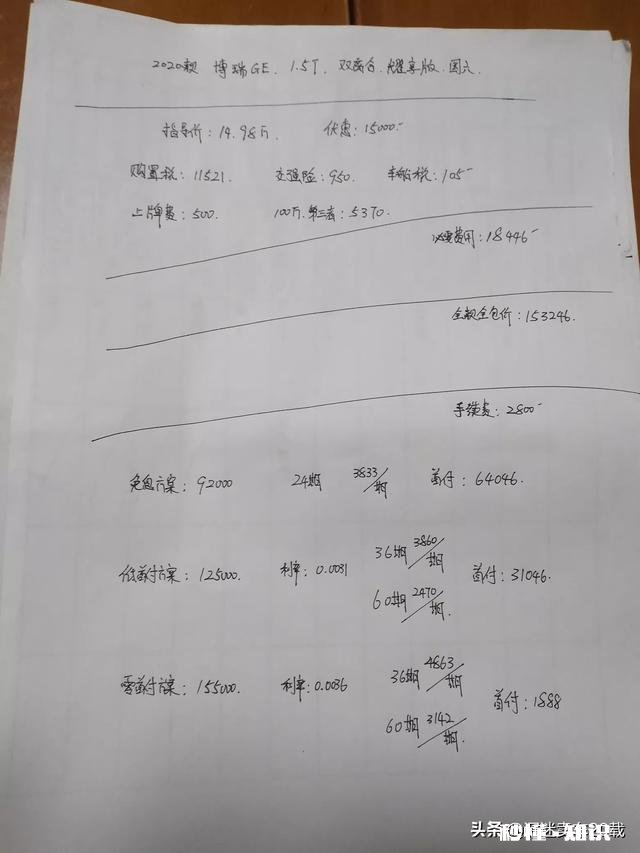 2020款 博瑞GE. 1.5T. 双离合. 耀享版. 国六.
指导价: 14.98万. 优惠: 15000-
购置税: 11521. 交强险: 950. 车船税: 105-
上牌费: 500. 100万.第三者: 5370.
必要费用: 18446-
全款全包价: 153246.
手续费: 2800-
免息方案: 92000 24期 3833/期 首付: 64046.
低首付方案: 125000. 利率: 0.0031 36期 3860/期 首付: 31046.
60期 2470/期.
零首付方案: 155000. 利率: 0.0036 36期 4863/期 首付: 1888
60期 3142/期.
头条
秒懂 知识